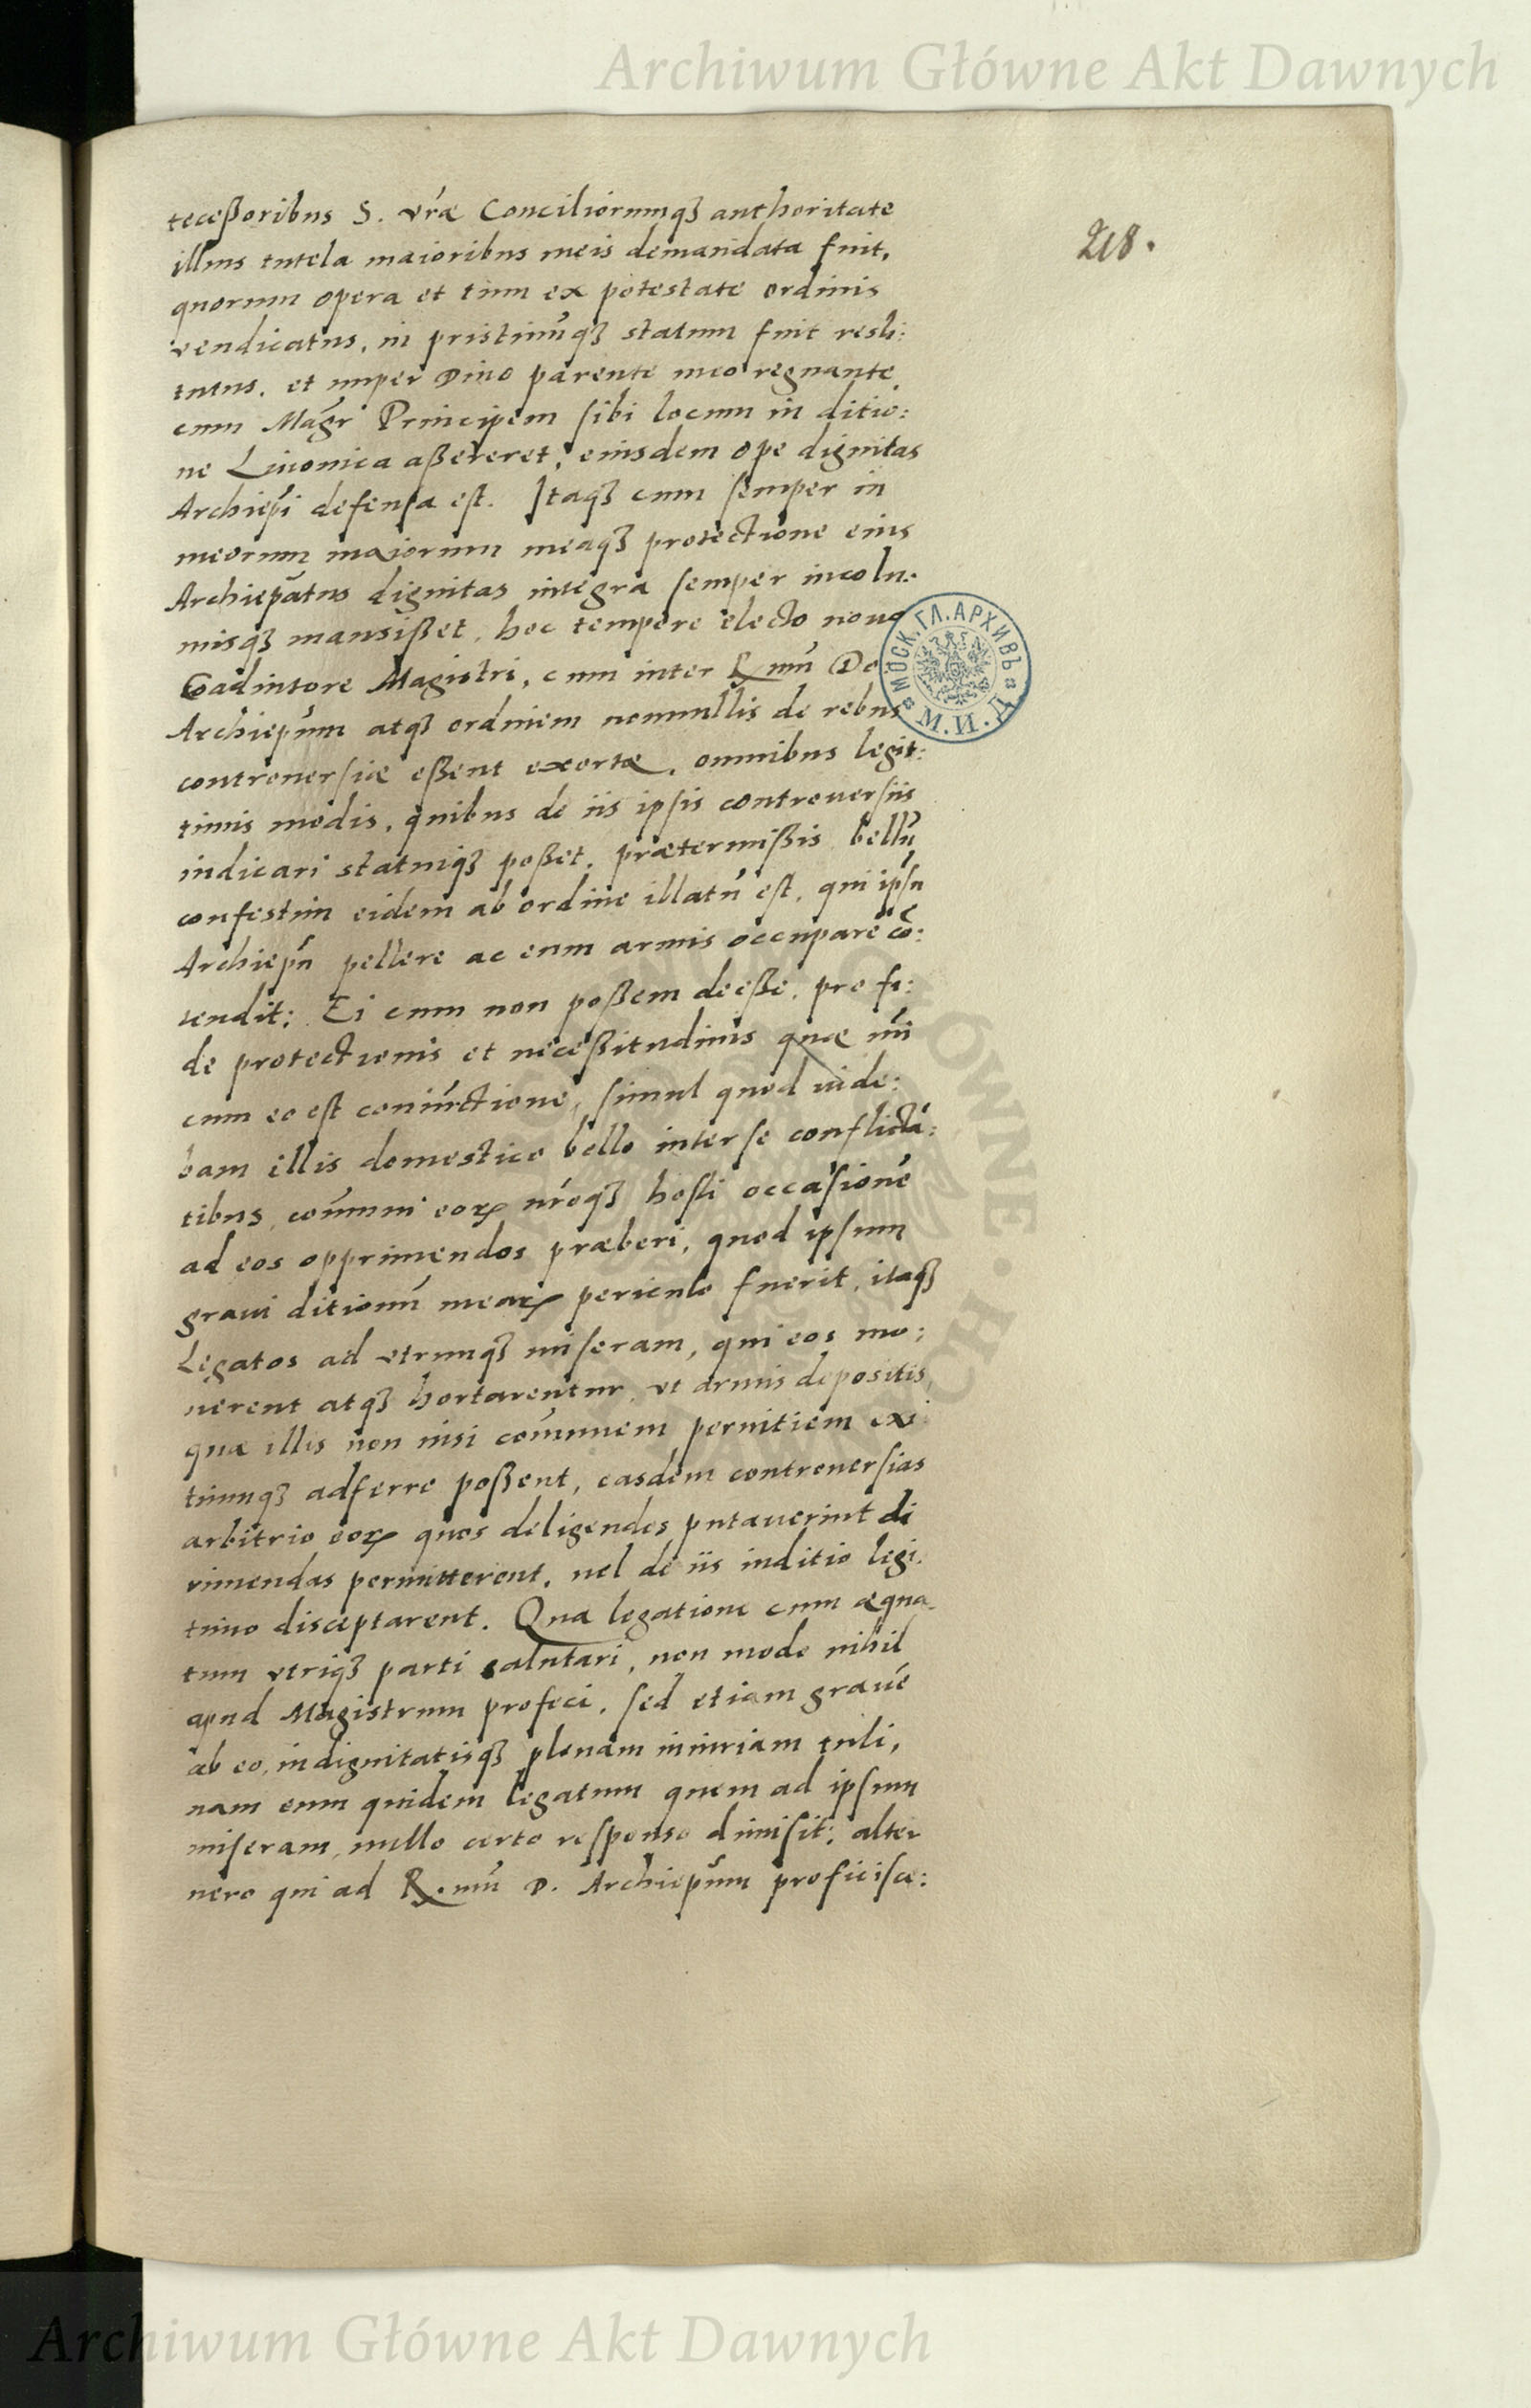 Archiwum Główne Akt Dawnych
218.
teceßoribus S. vrǽ Conciliorumqꝫ authoritate
illius tutela maioribus meis demandata fuit,
quorum opera et tum ex potestate ordinis
vendicatus, in pristinūqꝫ statum fuit resti:
tutus. et nuper Diuo parente meo regnante
cum Magr̄ Principem sibi locum in ditio:
ne Liuonica aßereret, eiusdem ope dignitas
Archiepī defensa est. Itaqꝫ cum semper in
meorum maiorum meaqꝫ protectione eius
Archiepātus dignitas integra semper incolu:
misqꝫ mansißet, hoc tempore electo nouo
Coadiutore Magistri, cum inter R mū Do
Archiepūm atqꝫ ordinem nonnullis de rebus
controuersiæ eßent exortæ, omnibus legit:
timis modis, quibus de iis ipsis controuersiis
iudicari statuiqꝫ poßet, prætermißis bellū
confestim eidem ab ordine illatū est, qui ipsū
Archiepū pellere ac eum armis occupare cō:
tendit: Ei cum non poßem deeße, pro fi:
de protectionis et neceßitudinis quæ mī
cum eo est coniūctione, simul quod uide:
bam illis domestico bello inter se conflictā:
tibus, cōmuni eoꝝ nr̄oqꝫ hosti occasionē
ad eos opprimendos præberi, quod ipsum
graui ditionū meaꝝ periculo fuerit, itaqꝫ
Legatos ad vtrumqꝫ miseram, qui eos mo:
nerent atqꝫ hortarentur, vt armis depositis
quæ illis non nisi cōmunem pernitiem exi
tiumqꝫ adferre poßent, easdem controuersias
arbitrio eoꝝ quos deligendos putauerint di
rimendas permitterent, uel de iis iuditio legi.
timo disceptarent. Qua legatione cum æqua
tum vtriqꝫ parti salutari, non modo nihil
apud Magistrum profeci, sed etiam grauē
ab eo, indignitatisqꝫ plenam iniuriam tuli,
nam eum quidem legatum quem ad ipsum
miseram, nullo certo responso dimisit: alter
uero qui ad R.mū D. Archiepūm proficisce:
МОСК. ГЛ. АРХИВЪ
М.И.Д.
Archiwum Główne Akt Dawnych